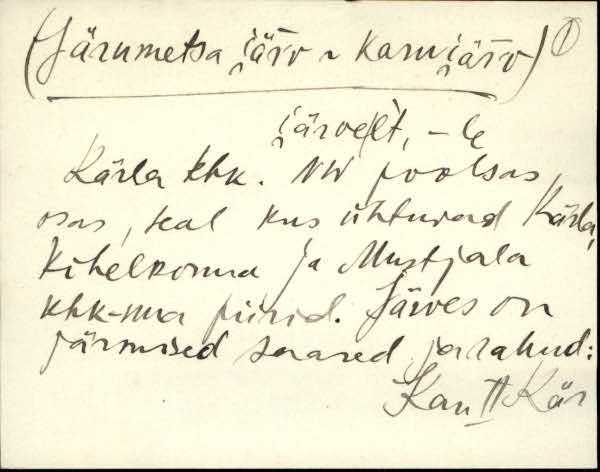 (Järumetsa järv ~ Karujärv) 1
järve(lt, -le
Kärla khk. NW poolsas
osas, seal kus ühtuvad Kärla,
Kihelkonna ja Mustjala
khk-nna piirid. Järves on
järgmised saared ja rahud:
Kau II Kär